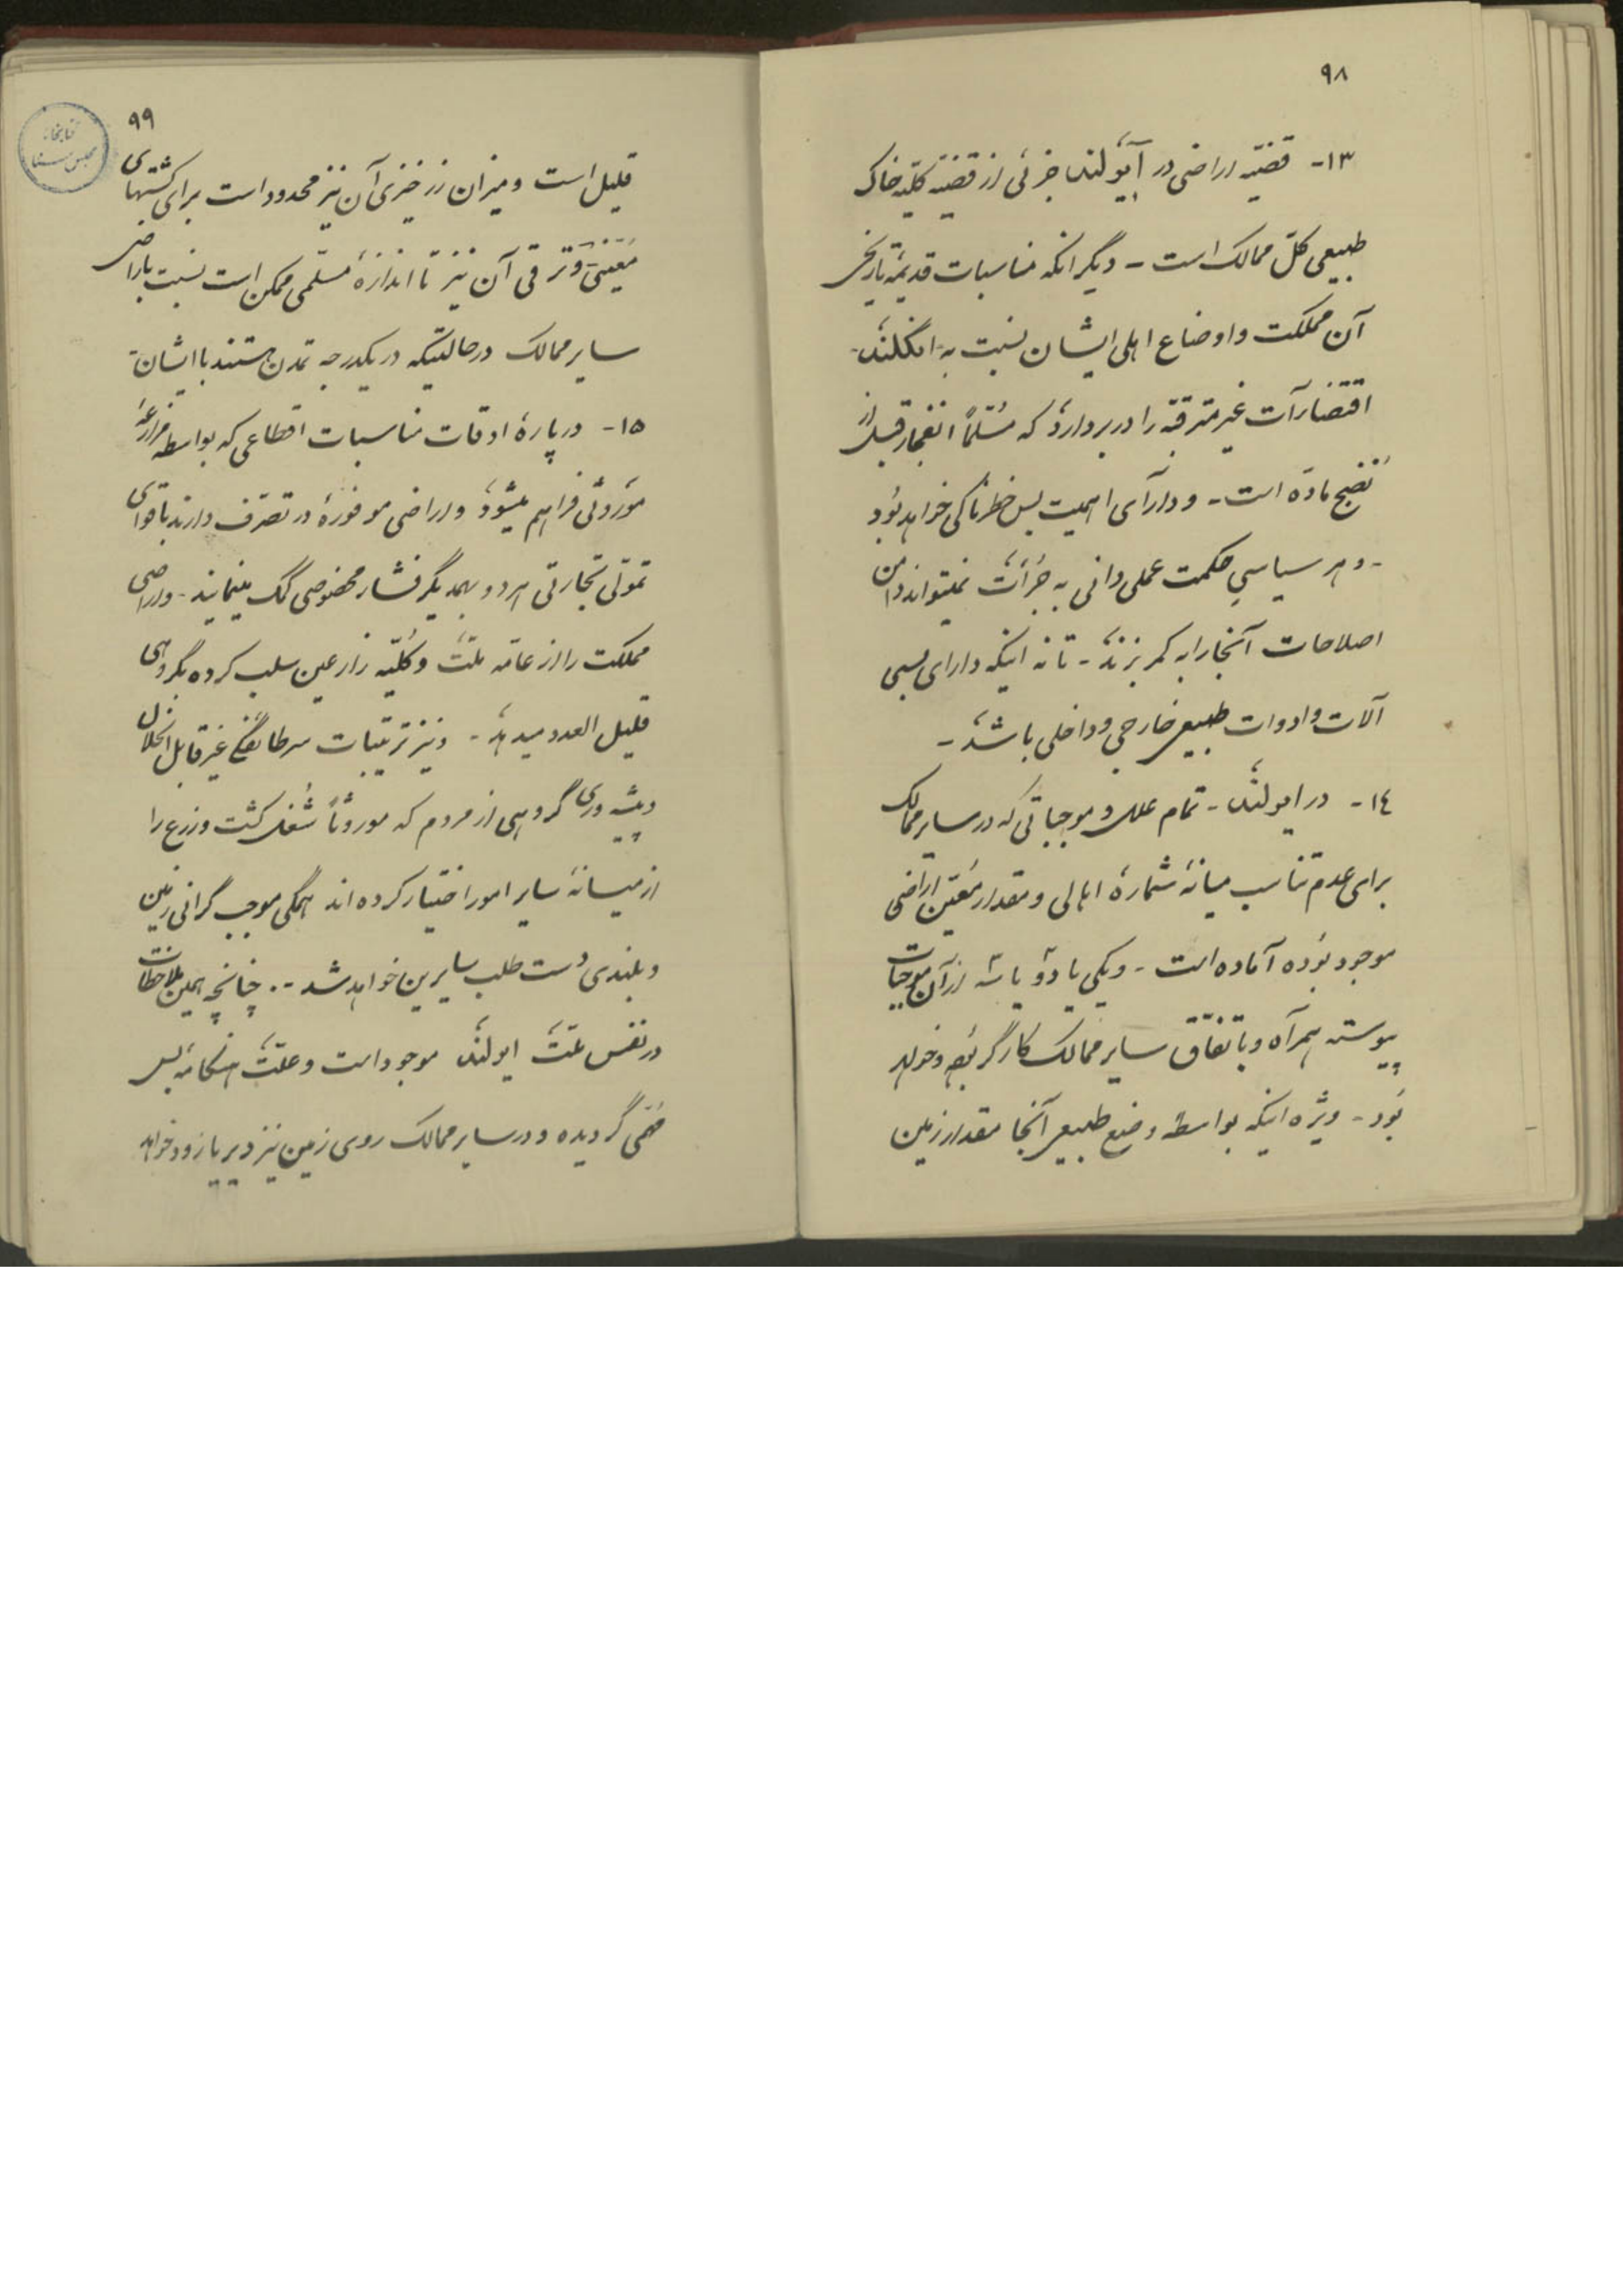 ٩٨
١٣- قضیه اراضی در آیولند جزئی از قضیه کلیه خاک
طبیعی کل ممالک است - دیگر انکه مناسبات قدیمه تاریخی
آن مملکت و اوضاع اهلی ایشان نسبت به انگلند
غیر مترقبه را در بر دارد که مسلماً انفجار قبل از
نضج ماده است - و دارای اهمیت بس خطرناکی خواهد بود
- و هر سیاسی حکمت عملی دانی به جرأت نمیتواند دامن
اصلاحات آنجا را به کمر بزند - تا نه اینکه دارای بسی
آلات و ادوات طبیعی خارجی و داخلی باشد -
١٤- در ایولند - تمام علل و موجباتی که در سایر ممالک
برای عدم تناسب میانهٔ شمارهٔ اهالی و مقدار معین اراضی
موجود بوده آماده است - و یکی یا دو یا سه از آن موجبات
پیوسته همراه و باتفاق سایر ممالک کارگر بوده و خواهد
بود - ویژه اینکه بواسطه وضع طبیعی آنجا مقدار زمین
٩٩
قلیل است و میزان زرخیزی آن نیز محدود است برای کشتهای
معینی و ترقی آن نیز تا اندازهٔ مسلمی ممکن است نسبت باراضی
سایر ممالک در حالتیکه در یکدرجه تمدن هستند با ایشان
١٥- در پارهٔ اوقات مناسبات اقطاعی که بواسطه مزارعهٔ
موروثی فراهم میشود و اراضی موفوره در تصرف دارند با قوای
تمولی تجارتی هر دو بهمدیگر فشار مخصوصی کمک مینمایند - و اراضی
مملکت را از عامه ملت و کلیه زارعین سلب کرده بگروهی
قلیل العدد میدهد - و نیز ترتیبات غیر قابل انحلال
و پیشه وری گروهی از مردم که موروثاً شغل کشت و زرع را
از میانهٔ سایر امور اختیار کرده اند همگی موجب گرانی زمین
و بلندی دست طلب سایرین خواهد شد -۰ چنانچه همین ملاحظات
در نفس ملت ایولند موجود است و علت هنگامه بس
مهمی گردیده و در سایر ممالک روی زمین نیز دیر یا زود خواهد
کتابخانه
مجلس سنا